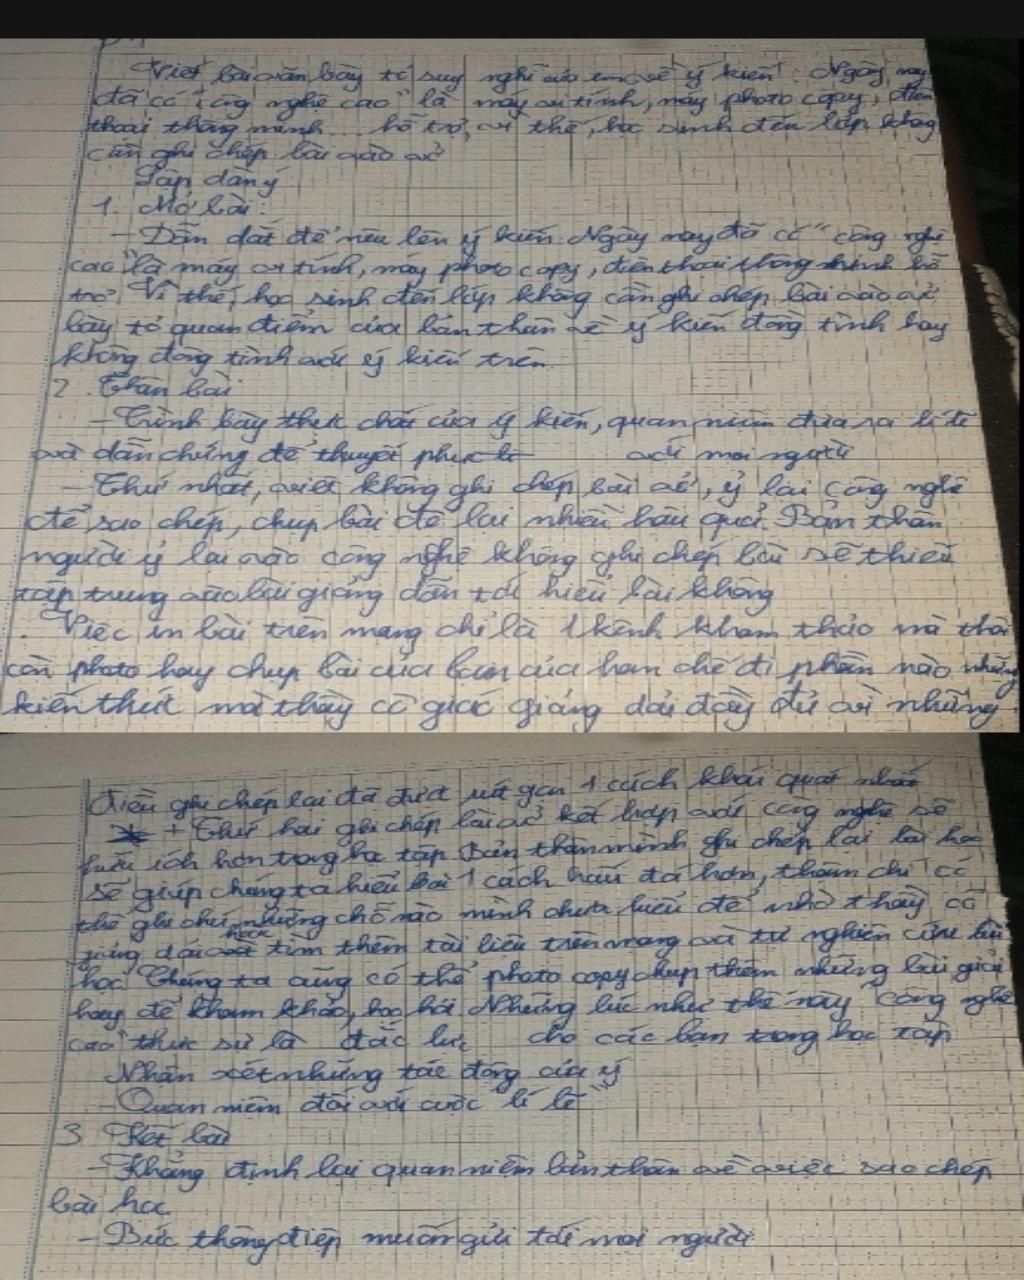 Viết bài văn bày tỏ suy nghĩ của em về ý kiến: Ngày nay
đã có "công nghệ cao" là máy vi tính, máy photo copy, điện
thoại thông minh... hỗ trợ, vì thế, học sinh đến lớp không
cần ghi chép bài vào vở
Lập dàn ý
1. Mở bài:
- Dẫn dắt để nêu lên ý kiến. Ngày nay đã có "công nghệ
cao" là máy vi tính, máy photo copy, điện thoại thông minh hỗ
trợ. Vì thế, học sinh đến lớp không cần ghi chép bài vào vở
bày tỏ quan điểm của bản thân về ý kiến đồng tình hay
không đồng tình với ý kiến trên.
2. Thân bài
- Trình bày thực chất của ý kiến, quan niệm đưa ra lí lẽ
và dẫn chứng để thuyết phục với mọi người
- Thứ nhất, việc không ghi chép bài vở, ỷ lại công nghệ
để sao chép, chụp bài để lại nhiều hậu quả. Bản thân
người ỷ lại vào công nghệ không ghi chép bài sẽ thiếu
tập trung vào bài giảng dẫn tới hiểu bài không
. Việc in bài trên mạng chỉ là 1 kênh kham thảo mà thôi
còn photo hay chụp bài của bạn của hạn chế đi phần nào những
kiến thức mà thầy cô giác giảng dải đầy đủ vì những
điều ghi chép lại đã được rút gọn 1 cách khái quát nhất
+ Thứ hai ghi chép bài vở kết hợp với công nghệ sẽ
hữu ích hơn trong học tập Bản thân mình ghi chép lại bài học
sẽ giúp chúng ta hiểu bài 1 cách sâu đá hơn, thậm chí có
thể ghi chú những chỗ nào mình chưa hiểu để nhờ thầy cô
giảng dải hoặc tìm thêm tài liệu trên mạng và tự nghiên cứu bài
học Chúng ta cũng có thể photo copy chụp thêm những bài giải
hay để kham khảo, học hỏi Những lúc như thế này "công nghệ
cao" thực sự là đắc lực cho các bạn trong học tập
Nhận xét những tác động của ý
- Quan niệm đối với cuộc "lí lẽ"
3 Kết bài
- Khẳng định lại quan niệm bản thân về việc sao chép
bài học
- Bức thông điệp muốn gửi tới mọi người.